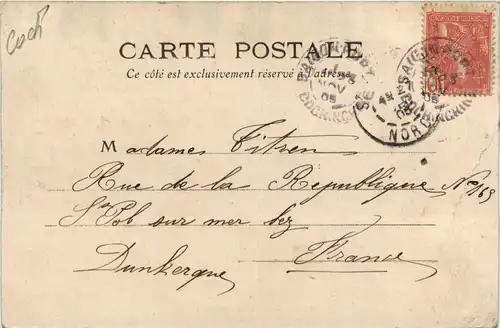 Coch
CARTE POSTALE
Ce côté est exclusivement réservé à l'adresse
SAIGON
NOV
05
COCHINCHINE
SAIGON
05
COCHINCHINE
NORD
10
Madames Titren
Rue de la Republique No 163
St Pol sur mer lez
Dunkerque France